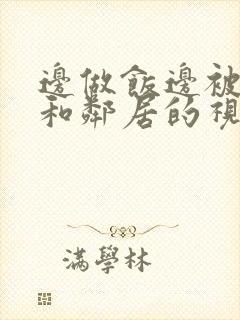 邊做飯邊被
和鄰居的視
滿學林